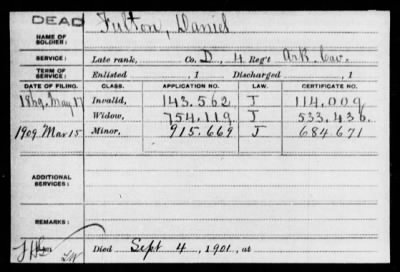 DEAD
NAME OF SOLDIER: Fulton, Daniel
SERVICE: Late rank, Co. D, 4 Reg't Ark. Cav.
TERM OF SERVICE: Enlisted , 1 Discharged , 1
DATE OF FILING. CLASS. APPLICATION NO. LAW. CERTIFICATE NO.
1869, May 17 Invalid, 143.562 J 114.009
Widow, 754,119 J 533.436
1909 Mar 15 Minor, 915.669 J 684.671
ADDITIONAL SERVICES:
REMARKS:
Died Sept 4, 1901, at